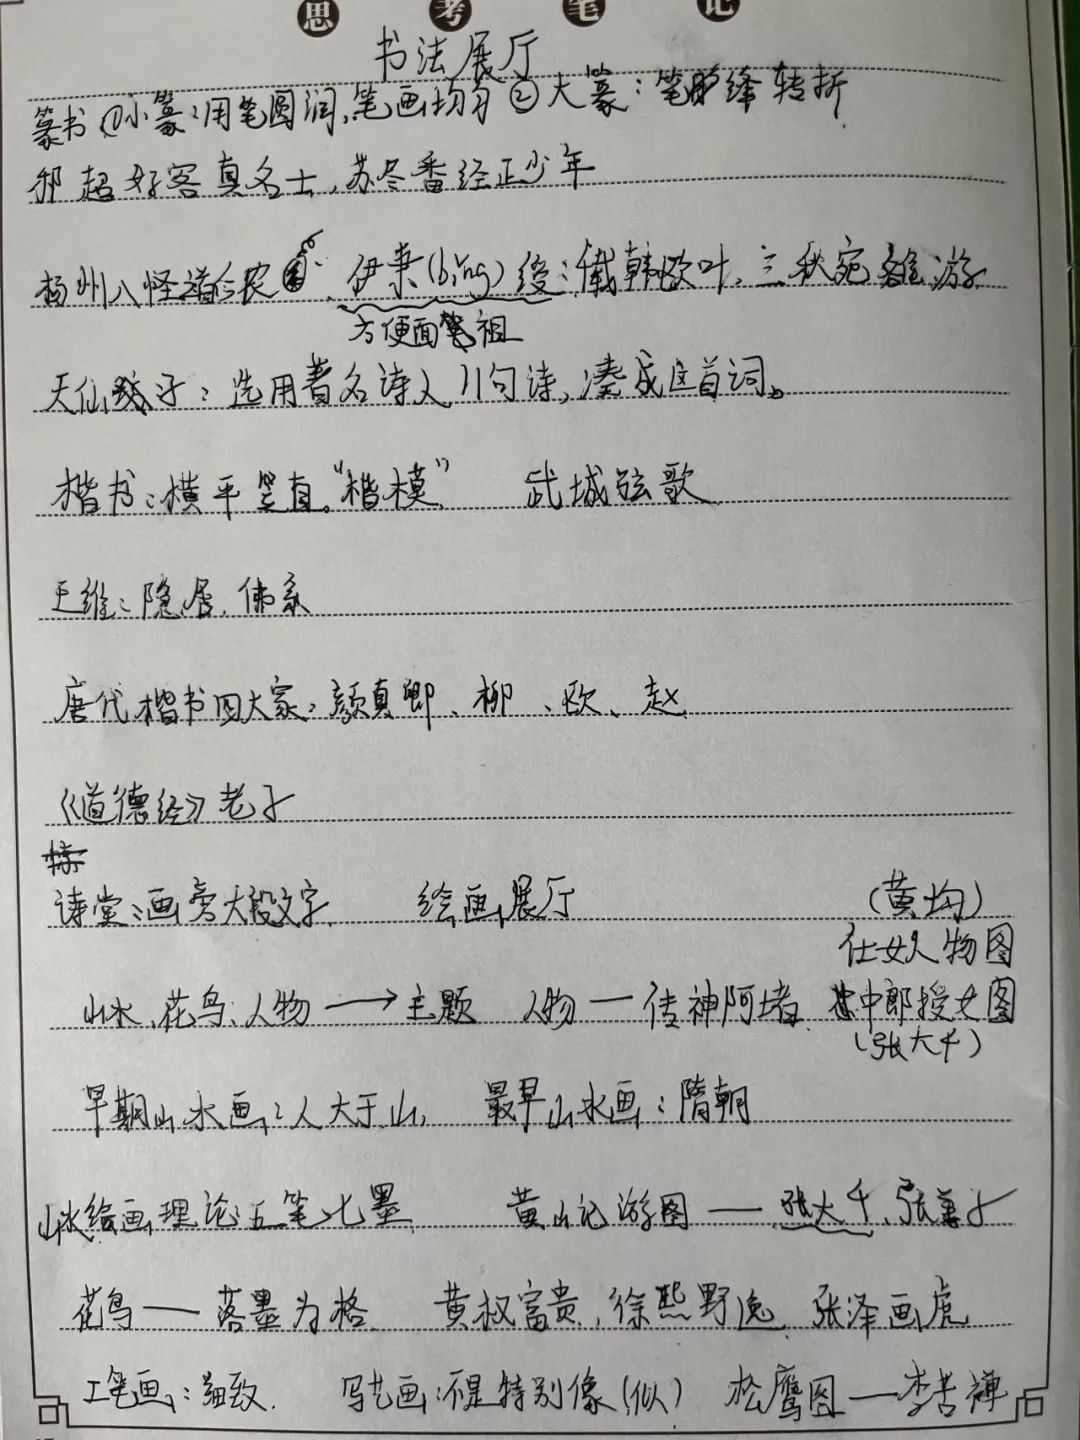 思考笔记
书法展厅
篆书①小篆:用笔圆润,笔画均匀②大篆:笔锋转折
郗超好客真名士,苏晋番经正少年
扬州八怪道:农 伊秉(bing)绶:截韩欧叶,三秋宛离游
方便面鼻祖
天仙子:选用著名诗人11句诗,凑成这首词。
楷书:横平竖直。“楷模” 武城弦歌
王维:隐居,佛系
唐代楷书四大家:颜真卿、柳、欧、赵
《道德经》老子
诗堂:画旁大段文字 绘画展厅 (黄均)
仕女人物图
山水、花鸟、人物→主题 人物—传神阿堵 中郎授女图
(张大千)
早期山水画:人大于山, 最早山水画:隋朝
山水绘画理论:五笔七墨 黄山记游图——张大千、张善子
花鸟——落墨为格 黄叔富贵,徐熙野逸 张泽画虎
工笔画:细致. 写艺画:不是特别像(似) 松鹰图——李苦禅